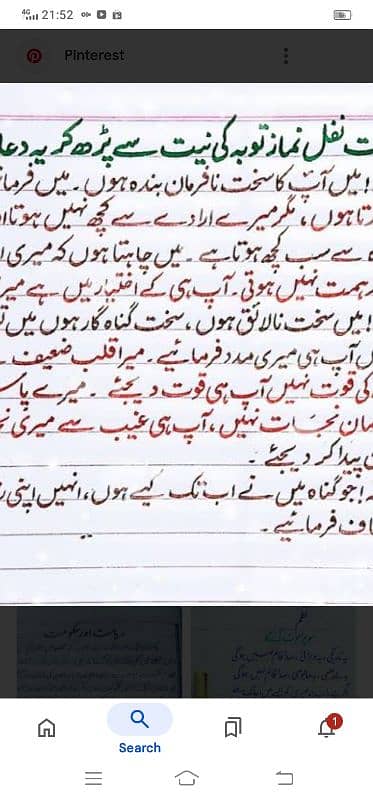 21:52
Pinterest
ت نفل نماز توبہ کی نیت سے پڑھ کر یہ دعا
! میں آپ کا سخت نافرمان بندہ ہوں۔ میں فرما
تا ہوں، مگر میرے ارادے سے کچھ نہیں ہوتا
ہ سے سب کچھ ہوتا ہے۔ میں چاہتا ہوں کہ میری
ہمت نہیں ہوتی۔ آپ ہی کے اختیار میں ہے میر
! میں سخت نالائق ہوں، سخت گناہ گار ہوں میں
ں آپ ہی میری مدد فرمائیے۔ میرا قلب ضعیف
کی قوت نہیں آپ ہی قوت دیجئے۔ میرے پاس
مان نجات نہیں، آپ ہی غیب سے میری نج
پیدا کر دیجئے۔
! جو گناہ میں نے اب تک کیے ہوں، انہیں اپنی
اف فرمائیے۔
ریاست اور حکومت
نظم
Search
1